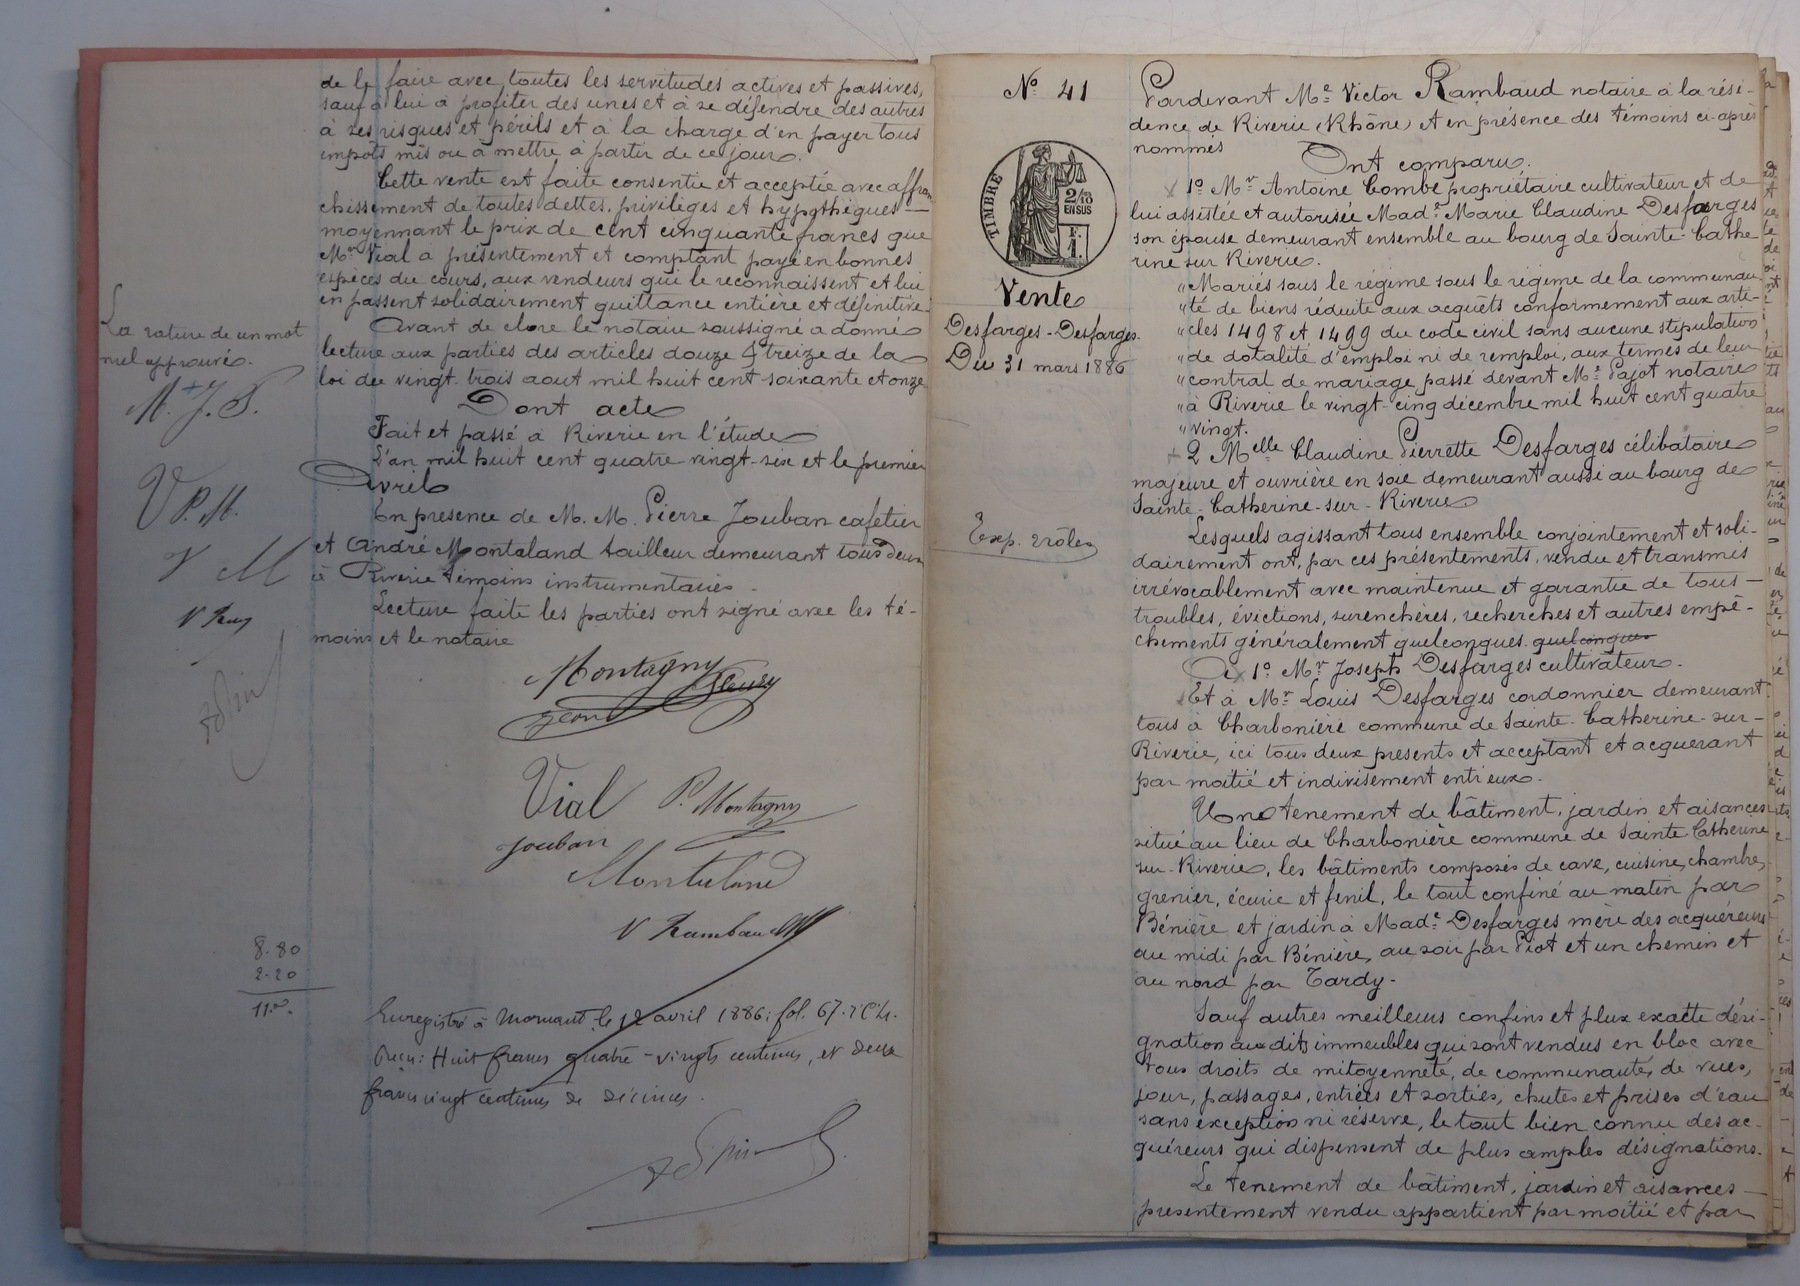 de le faire avec toutes les servitudes actives et passives,
sauf à lui à profiter des unes et à se défendre des autres
à ses risques et périls et à la charge d'en payer tous
impôts mis ou à mettre à partir de ce jour.
Cette vente est faite consentie et acceptée avec affran
chissement de toutes dettes, privilèges et hypothèques —
moyennant le prix de cent cinquante francs que
Mr Vial a présentement et comptant payé en bonnes
espèces du cours, aux vendeurs qui le reconnaissent et lui
en passent solidairement quittance entière et définitive.
Avant de clore le notaire soussigné a donné
lecture aux parties des articles douze & treize de la
loi du vingt-trois aout mil huit cent soixante et onze
Dont acte
Fait et passé à Riverie en l'étude
L'an mil huit cent quatre-vingt-six et le premier
Avril
En présence de M. M. Pierre Jouban cafetier
et André Montaland tailleur demeurant tous deux
à Riverie témoins instrumentaires.
Lecture faite les parties ont signé avec les té-
moins et le notaire
La rature de un mot
nul approuvée.
M. J. S.
V P. M.
J M
V Ram
Montagny Fleury
Vial P. Montagny
Jouban
Montaland
V Rambaud
8-80
2-20
11.
Enregistré à Mornant le 12 avril 1886, fol. 67.
Reçu: Huit francs quatre-vingts centimes, et deux
francs vingt centimes de décimes.
No 41
TIMBRE
2/10
EN SUS
F.
1.
Vente
Desfarges-Desfarges.
Du 31 mars 1886
Exp. 2 rôles
Pardevant Me Victor Rambaud notaire à la rési-
dence de Riverie (Rhône) et en présence des témoins ci-après
nommés
Ont comparu.
1o Mr Antoine Combe propriétaire cultivateur et de
lui assistée et autorisée Made Marie Claudine Desfarges
son épouse demeurant ensemble au bourg de Sainte-Cathe
rine sur Riverie.
"Mariés sous le régime sous le régime de la communau-
"té de biens réduite aux acquêts conformement aux arti-
"cles 1498 et 1499 du code civil sans aucune stipulation
"de dotalité d'emploi ni de remploi, aux termes de leur
"contrat de mariage passé devant Me Pajot notaire
"à Riverie le vingt-cinq décembre mil huit cent quatre
"vingt.
2 Melle Claudine Pierrette Desfarges célibataire
majeure et ouvrière en soie demeurant aussi au bourg de
Sainte-Catherine-sur-Riverie
Lesquels agissant tous ensemble conjointement et soli-
dairement ont, par ces présentements, vendu et transmis
irrévocablement avec maintenue et garantie de tous —
troubles, évictions, surenchères, recherches et autres empê-
chements généralement quelconques. quelconques
A 1o Mr Joseph Desfarges cultivateur.
Et à Mr Louis Desfarges cordonnier demeurant
tous à Charbonière commune de Sainte-Catherine-sur-
Riverie, ici tous deux presents et acceptant et acquerant
par moitié et indivisement entr'eux.
Un tenement de bâtiment, jardin et aisances
situé au lieu de Charbonière commune de Sainte Catherine
sur-Riverie, les bâtiments composés de cave, cuisine, chambre,
grenier, écurie et fenil, le tout confiné au matin par
Bénière et jardin à Made Desfarges mère des acquéreurs
au midi par Bénière, au soir par Piot et un chemin et
au nord par Tardy.
Sauf autres meilleurs confins et plus exacte dési-
gnation audits immeubles qui sont vendus en bloc avec
tous droits de mitoyenneté, de communauté, de vues,
jour, passages, entrées et sorties, chutes et prises d'eau
sans exception ni réserve, le tout bien connu des ac-
quéreurs qui dispensent de plus amples désignations.
Le tenement de bâtiment, jardin et aisances —
presentement vendu appartient par moitié et par